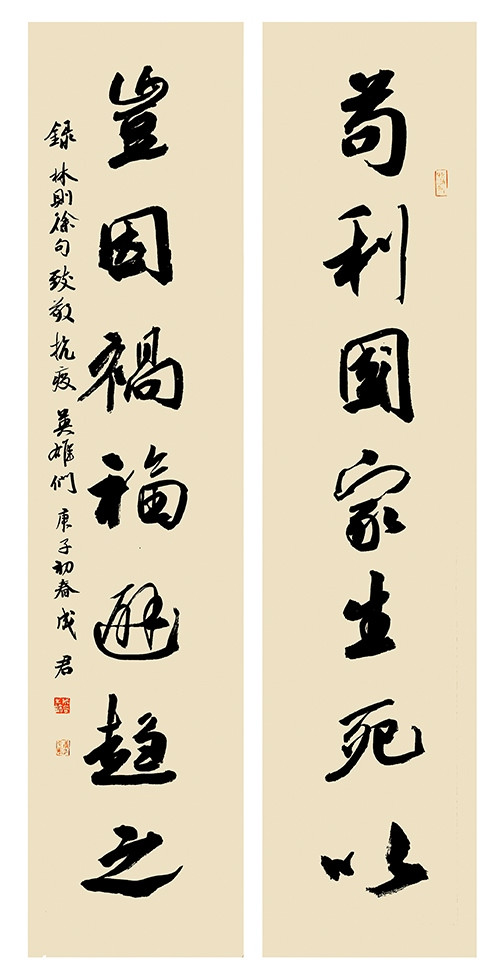 苟利國家生死以
豈因禍福避趨之
録林則徐句致敬抗疫英雄們庚子初春成君